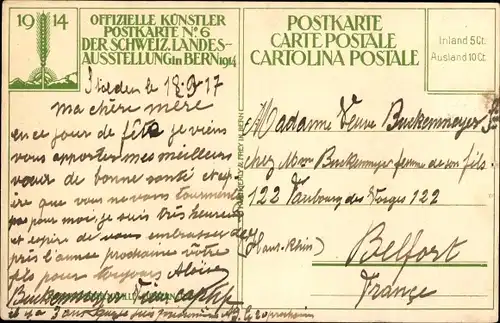 1914
OFFIZIELLE KÜNSTLER
POSTKARTE No. 6
DER SCHWEIZ. LANDES-
AUSSTELLUNG in BERN 1914
POSTKARTE
CARTE POSTALE
CARTOLINA POSTALE
Inland 5 Ct.
Ausland 10 Ct.
Stalden le 18 9 17
Ma chère mère
en ce jour de fête je viens
vous apporter mes meilleurs
vœux de bonne santé et
dire que vous ne vous tourmentez
pas pour moi, je suis très heureux
et espère de vous embrasser
près l'année prochaine vôtre
fils pour toujours Aloïse
Buskenmeyer
il y a 3 ans
Madame Veuve Buskenmeyer
chez Mon Buskenmeyer femme de son fils
122 Faubourg des Vosges 122
(Haut-Rhin) Belfort
France